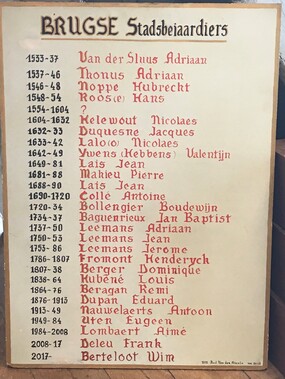 BRUGSE Stadsbeiaardiers
1533-37 Van der Sluus Adriaan
1537-46 Thonus Adriaan
1546-48 Noppe Hubrecht
1548-54 Roos(e) Hans
1554-1604 ?
1604-1632 Helewout Nicolaes
1632-33 Duquesne Jacques
1633-42 Lalo(o) Nicolaes
1642-49 Ywens (Hebbens) Valentijn
1649-81 Lais Jean
1681-88 Mahieu Pierre
1688-90 Lais Jean
1690-1720 Collé Antoine
1720-34 Bollengier Boudewijn
1734-37 Baguenrieux Jan Baptist
1737-50 Leemans Adriaan
1750-53 Leemans Jean
1753-86 Leemans Jerome
1786-1807 Fromont Henderyck
1807-38 Berger Dominique
1838-64 Hubené Louis
1864-76 Beragan Remi
1876-1913 Dupan Eduard
1913-49 Nauwelaerts Antoon
1949-84 Uten Eugeen
1984-2008 Lombaert Aimé
2008-17 Deleu Frank
2017- Berteloot Wim